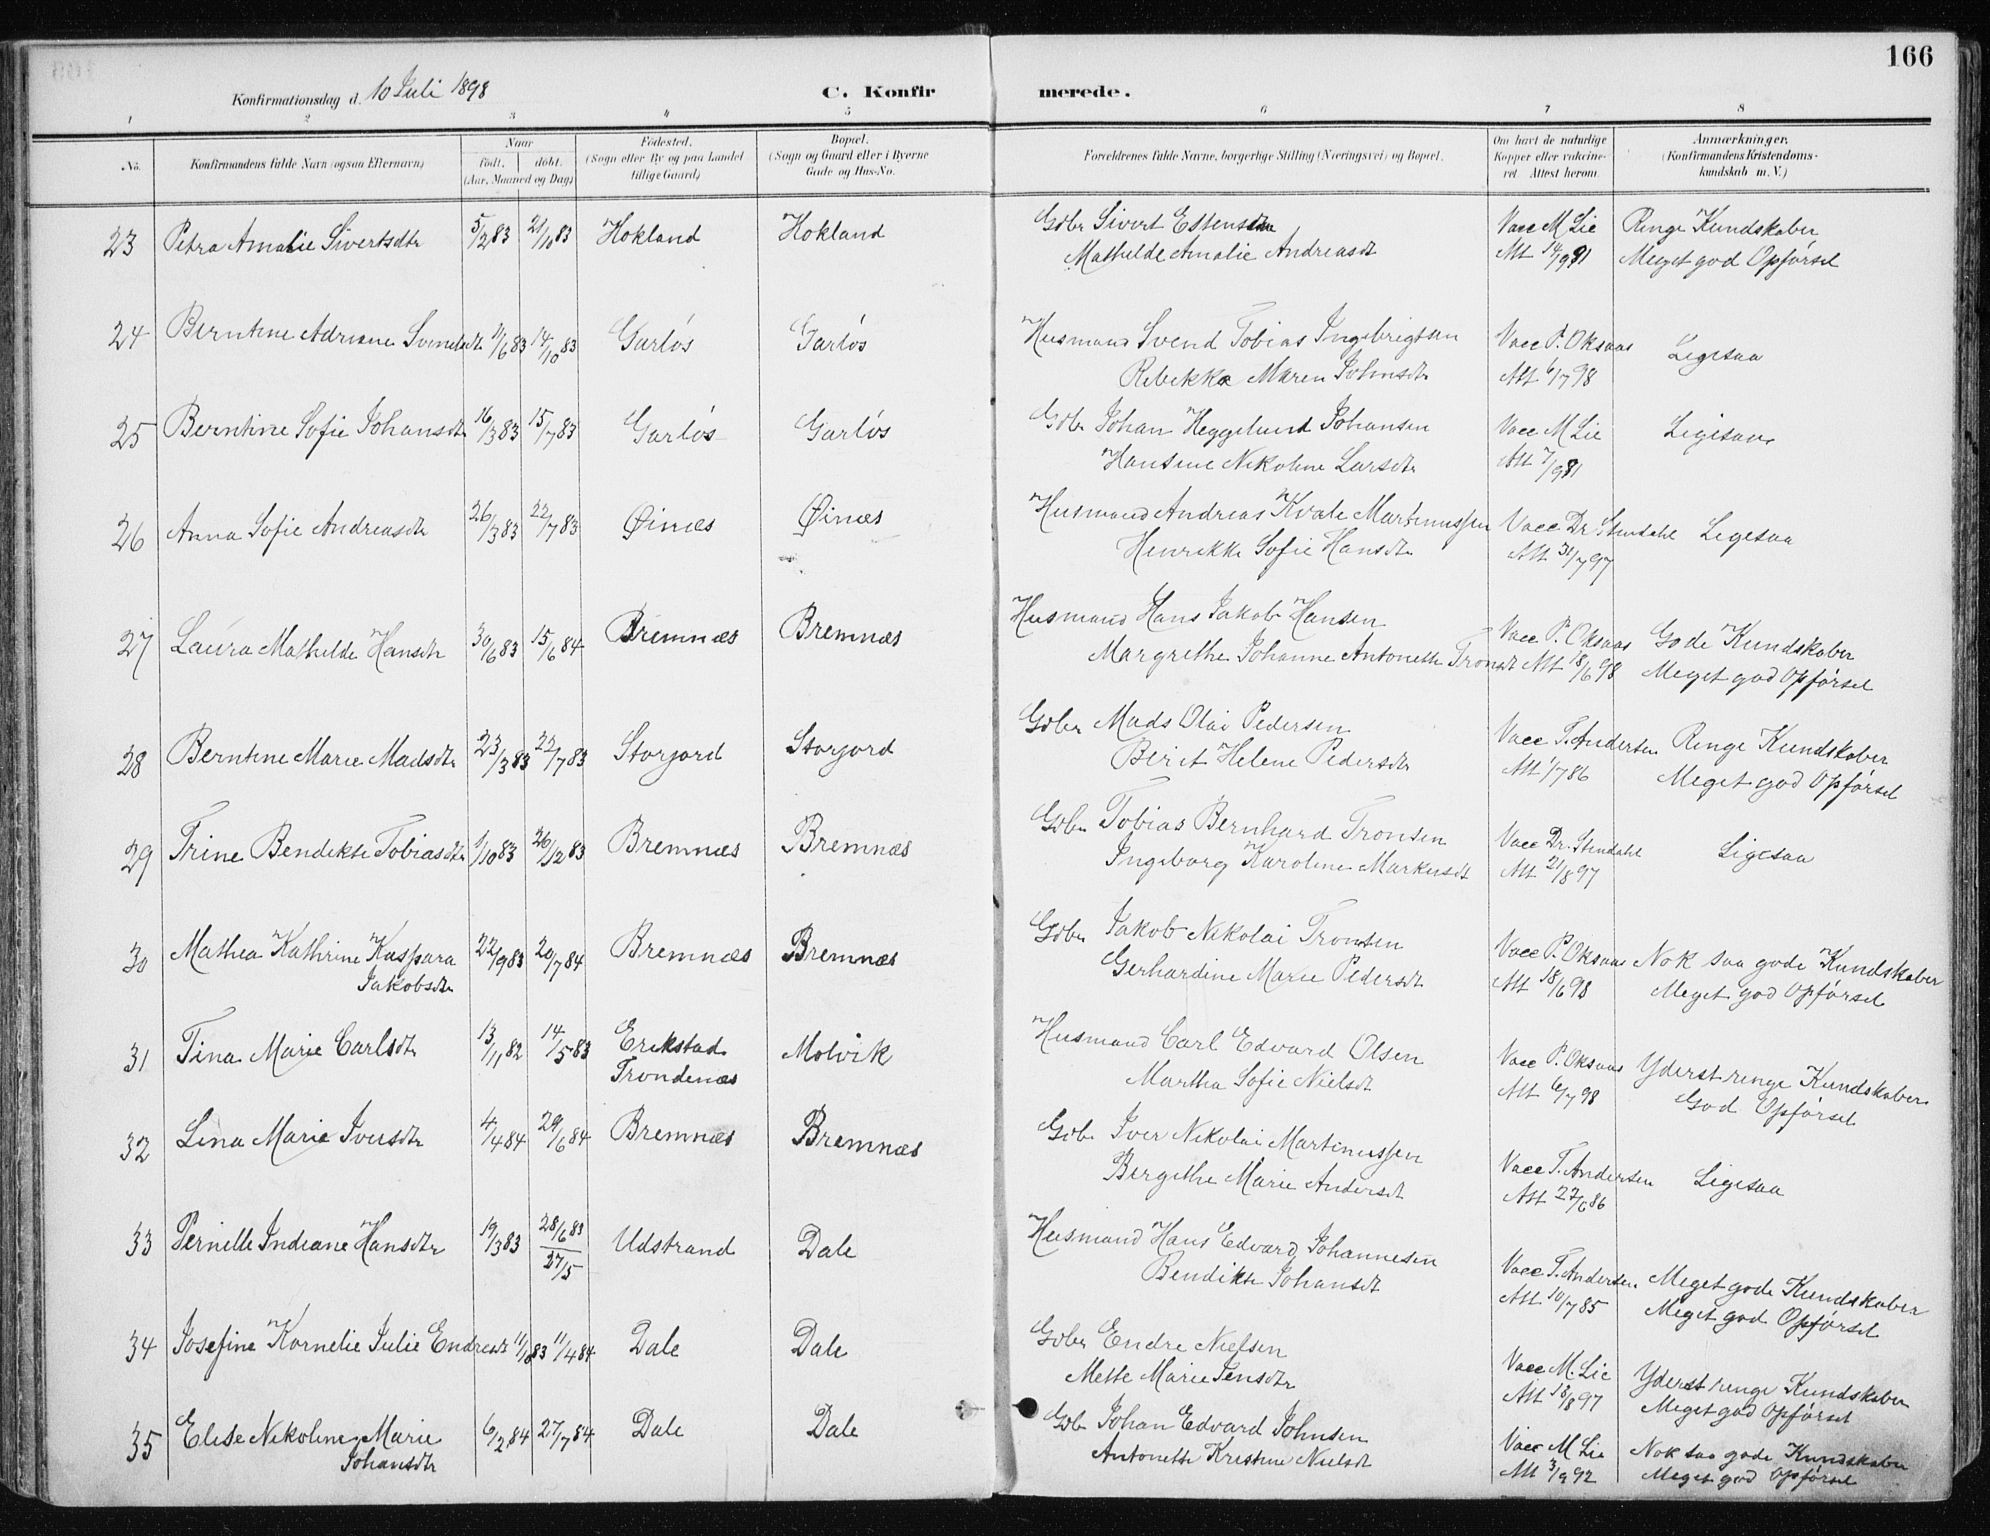 166
Konfirmationsdag d. 10 Juli 1898
C. Konfirmerede.
1 2 3 4 5 6 7 8
No.
Konfirmandens fulde Navn (ogsaa Efternavn)
Naar
født, døbt.
(Aar, Maaned og Dag)
Fødested.
(Sogn eller By og paa Landet tillige Gaard)
Bopæl.
(Sogn og Gaard eller i Byerne Gade og Hus-No.
Forældrenes fulde Navne, borgerlige Stilling (Næringsvei) og Bopæl.
Om havt de naturlige Kopper eller vaccineret. Attest herom.
Anmærkninger.
(Konfirmandens Kristendomskundskab m. V.)
23 Petra Amalie Sivertsdtr 5/2 83 21/10 83 Hokland Hokland Gdbr Sivert Estensen Vacc M Lie Ringe Kundskaber
Mathilde Amalie Andreasdt Att 14/9 91 Meget god Opførsel
24 Berntine Adriane Svendsdt 11/6 83 14/10 83 Garløs Garløs Husmand Svend Tobias Ingebrigtsen Vacc P. Oksaas Ligesaa
Rebekka Maren Johnsdtr Att 6/7 98
25 Berntine Sofie Johansdtr 16/3 83 15/7 83 Garløs Garløs Gdbr Johan Heggelund Johansen Vacc M Lie Ligesaa
Hansine Nikoline Larsdtr Att 7/9 91
26 Anna Sofie Andreasdtr 26/3 83 22/7 83 Øinæs Øinæs Husmand Andreas Kvale Martinussen Vacc Dr. Stendahl Ligesaa
Henrikke Sofie Hansdtr Att 31/7 97
27 Laura Mathilde Hansdtr 30/6 83 15/6 84 Bremnæs Bremnæs Husmand Hans Jakob Hansen Vacc P. Oksaas Gode Kundskaber
Margrethe Johanne Antonette Tronsdt Att 18/6 98 Meget god Opførsel
28 Berntine Marie Madsdtr 23/3 83 22/7 83 Storjord Storjord Gdbr Mads Olai Pedersen Vacc T. Andersen Ringe Kundskaber
Berit Helene Pedersdtr Att 1/7 86 Meget god Opførsel
29 Trine Bendikte Tobiasdtr 1/10 83 26/12 83 Bremnæs Bremnæs Gdbr Tobias Bernhard Tronsen Vacc Dr. Stendahl Ligesaa
Ingeborg Karoline Markusdt Att 21/8 97
30 Mathea Kathrine Kaspara 22/9 83 20/7 84 Bremnæs Bremnæs Gdbr Jakob Nikolai Tronsen Vacc P. Oksaas Nok saa gode Kundskaber
Jakobsdtr Gerhardine Marie Pedersdt Att 18/6 98 Meget god Opførsel
31 Tina Marie Carlsdtr 13/11 82 14/5 83 Erikstad Molvik Husmand Carl Edvard Olsen Vacc P. Oksaas Yderst ringe Kundskaber
Trondenæs Martha Sofie Nielsdt Att 6/7 98 God Opførsel
32 Lina Marie Iversdtr 4/4 84 29/6 84 Bremnæs Bremnæs Gdbr Iver Nikolai Martinussen Vacc T. Andersen Ligesaa
Bergithe Marie Andersdt Att 27/6 86
33 Pernille Indiane Hansdtr 19/3 83 28/6 83 Udstrand Dale Husmand Hans Edvard Johannesen Vacc T. Andersen Meget gode Kundskaber
27/5 Bendikte Johansdt Att 10/7 85 Meget god Opførsel
34 Josefine Kornelie Julie Endresdt 11/10 83 11/4 84 Dale Dale Gdbr Endre Nielsen Vacc M. Lie Yderst ringe Kundskaber
Mette Marie Jensdtr Att 18/8 97 Meget god Opførsel
35 Elise Nikoline Marie 6/2 84 27/7 84 Dale Dale Gdb Johan Edvard Johnsen Vacc M Lie Nok saa gode Kundskaber
Johansdtr Antonette Kristine Nielsdt Att 3/9 92 Meget god Opførsel